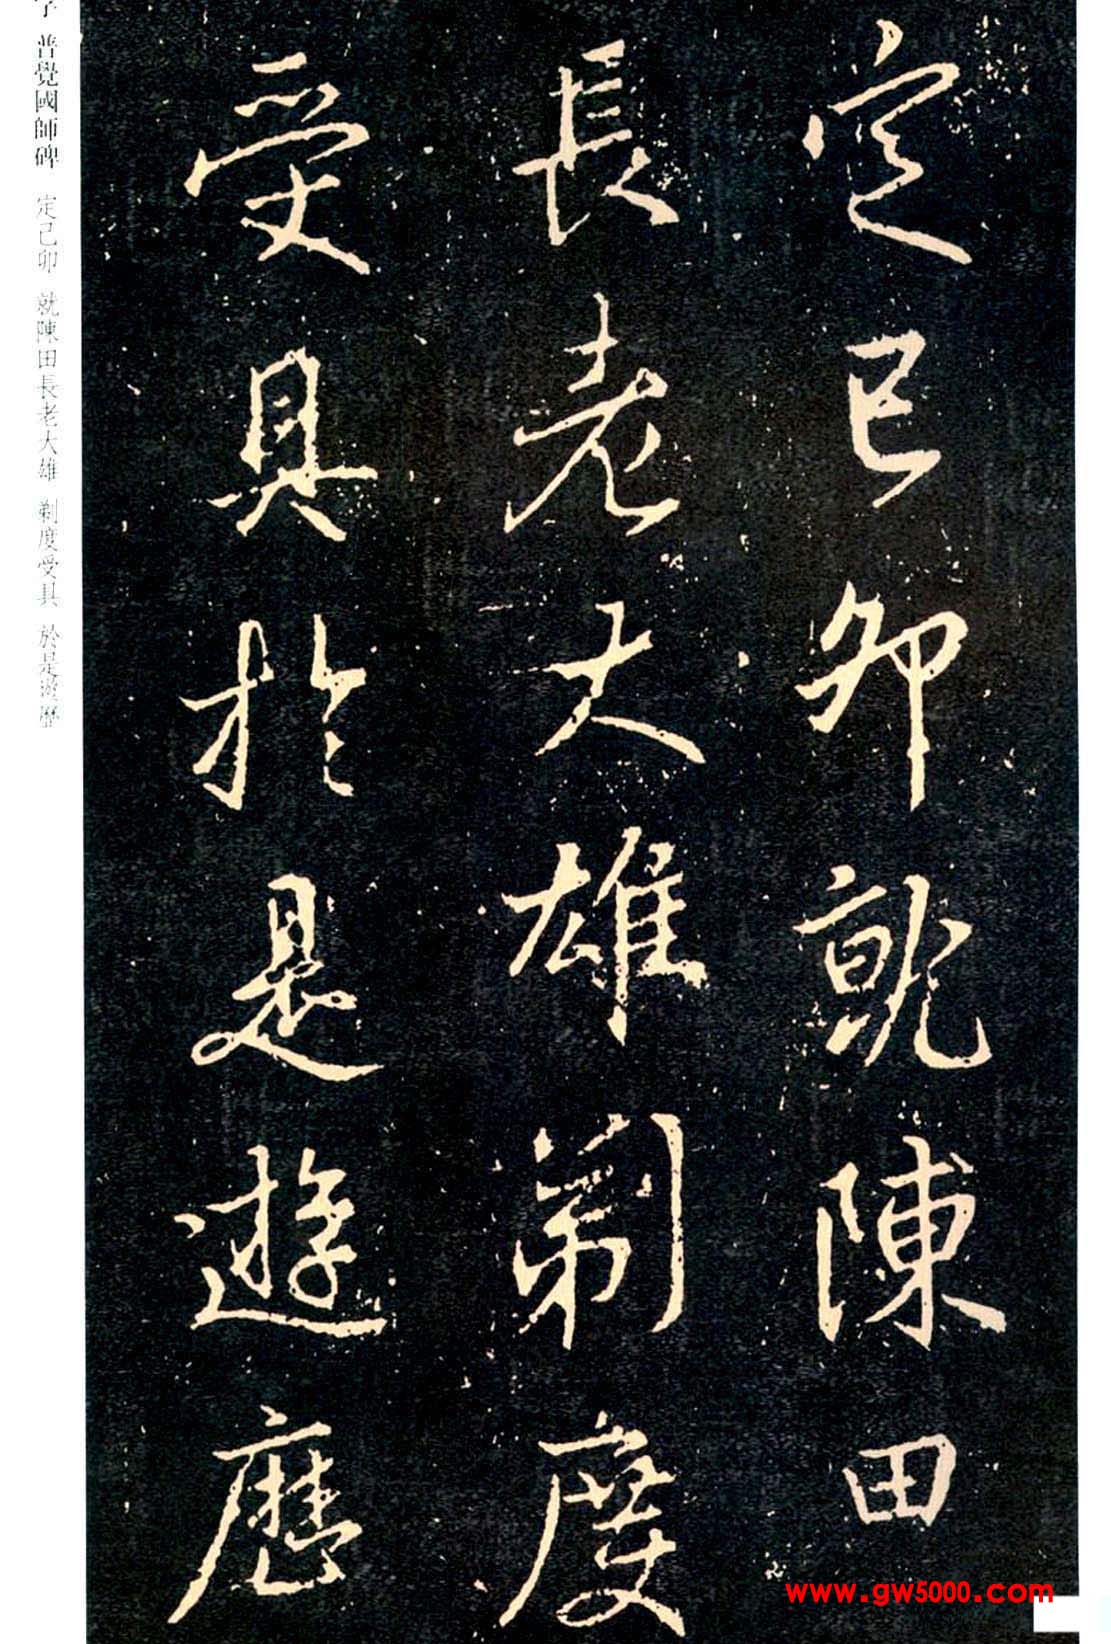 定己卯就陳田
長老大雄剃度
受具於是遊歷
普覺國師碑 定己卯 就陳田長老大雄 剃度受具 於是遊歷
www.gw5000.com